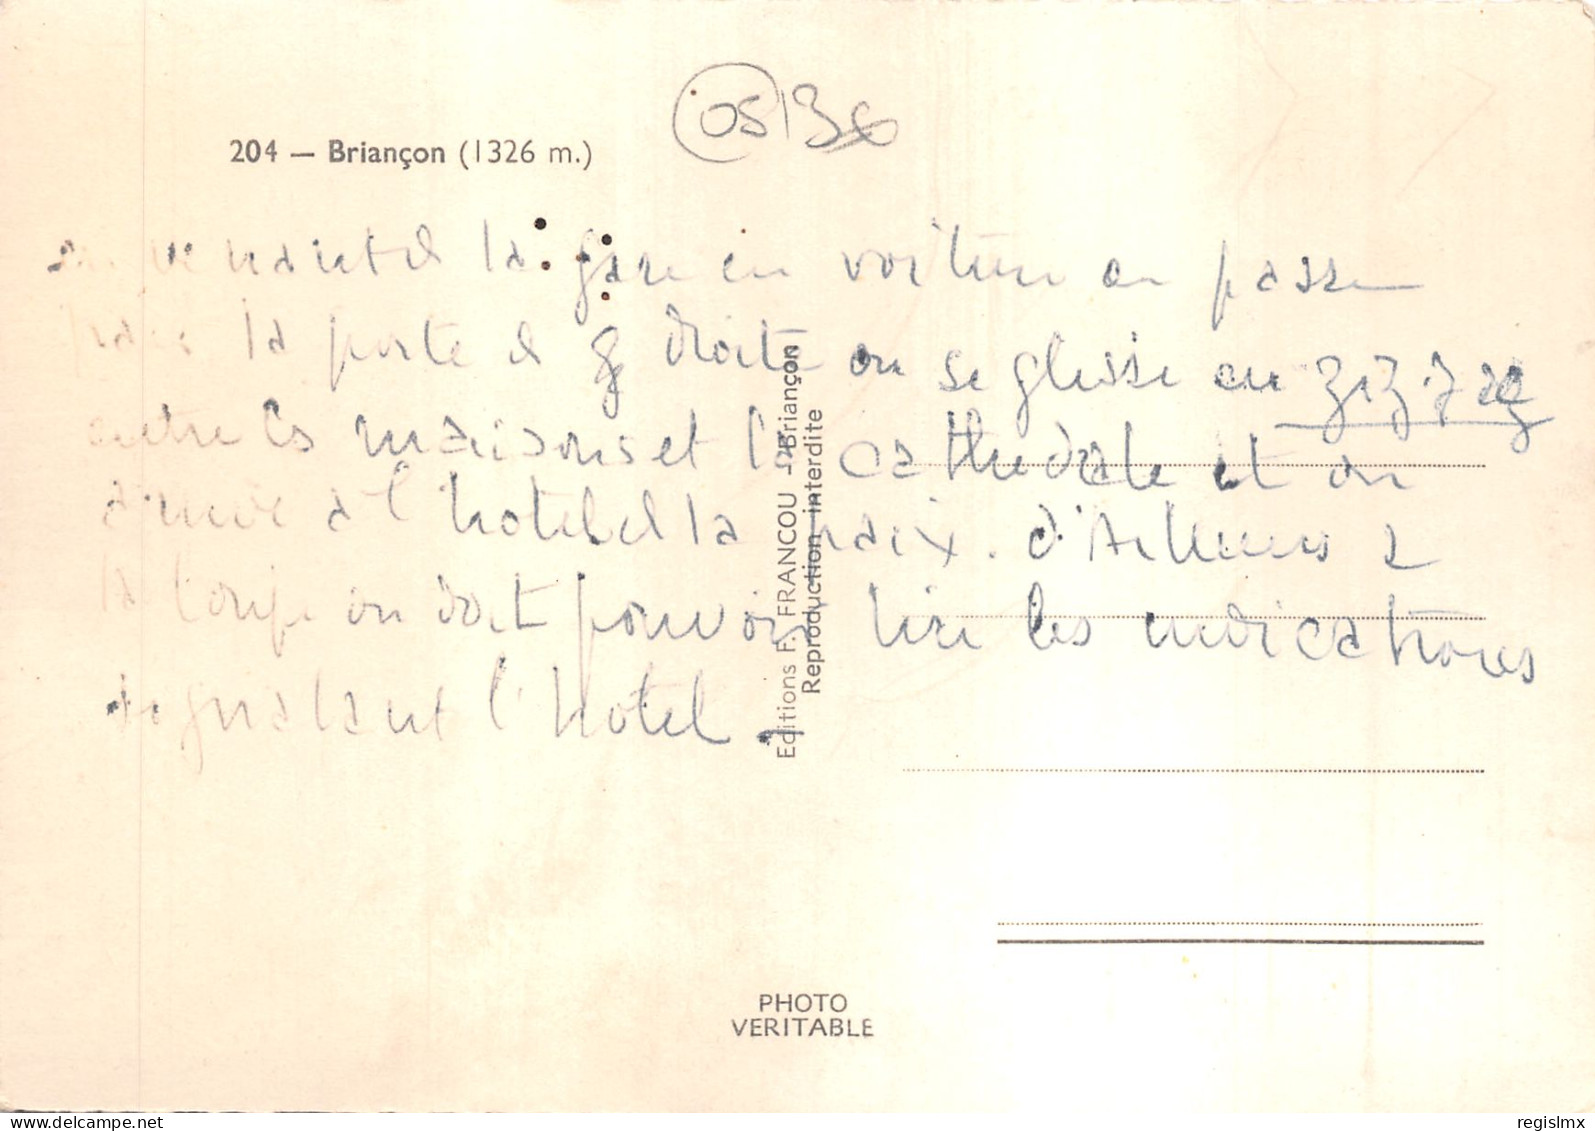 204 — Briançon (1326 m.)
05136
en venant de la gare en voiture on passe
par la porte de G droite on se glisse en zizizag
entre les maisons et la cathedrale et on
arrive à l'hotel de la paix. d'Ailleurs a
la loupe on doit pouvoir lire les indications
signalant l'hotel.
Editions F. FRANCOU - Briançon
Reproduction interdite
PHOTO
VERITABLE
www.delcampe.net
regislmx